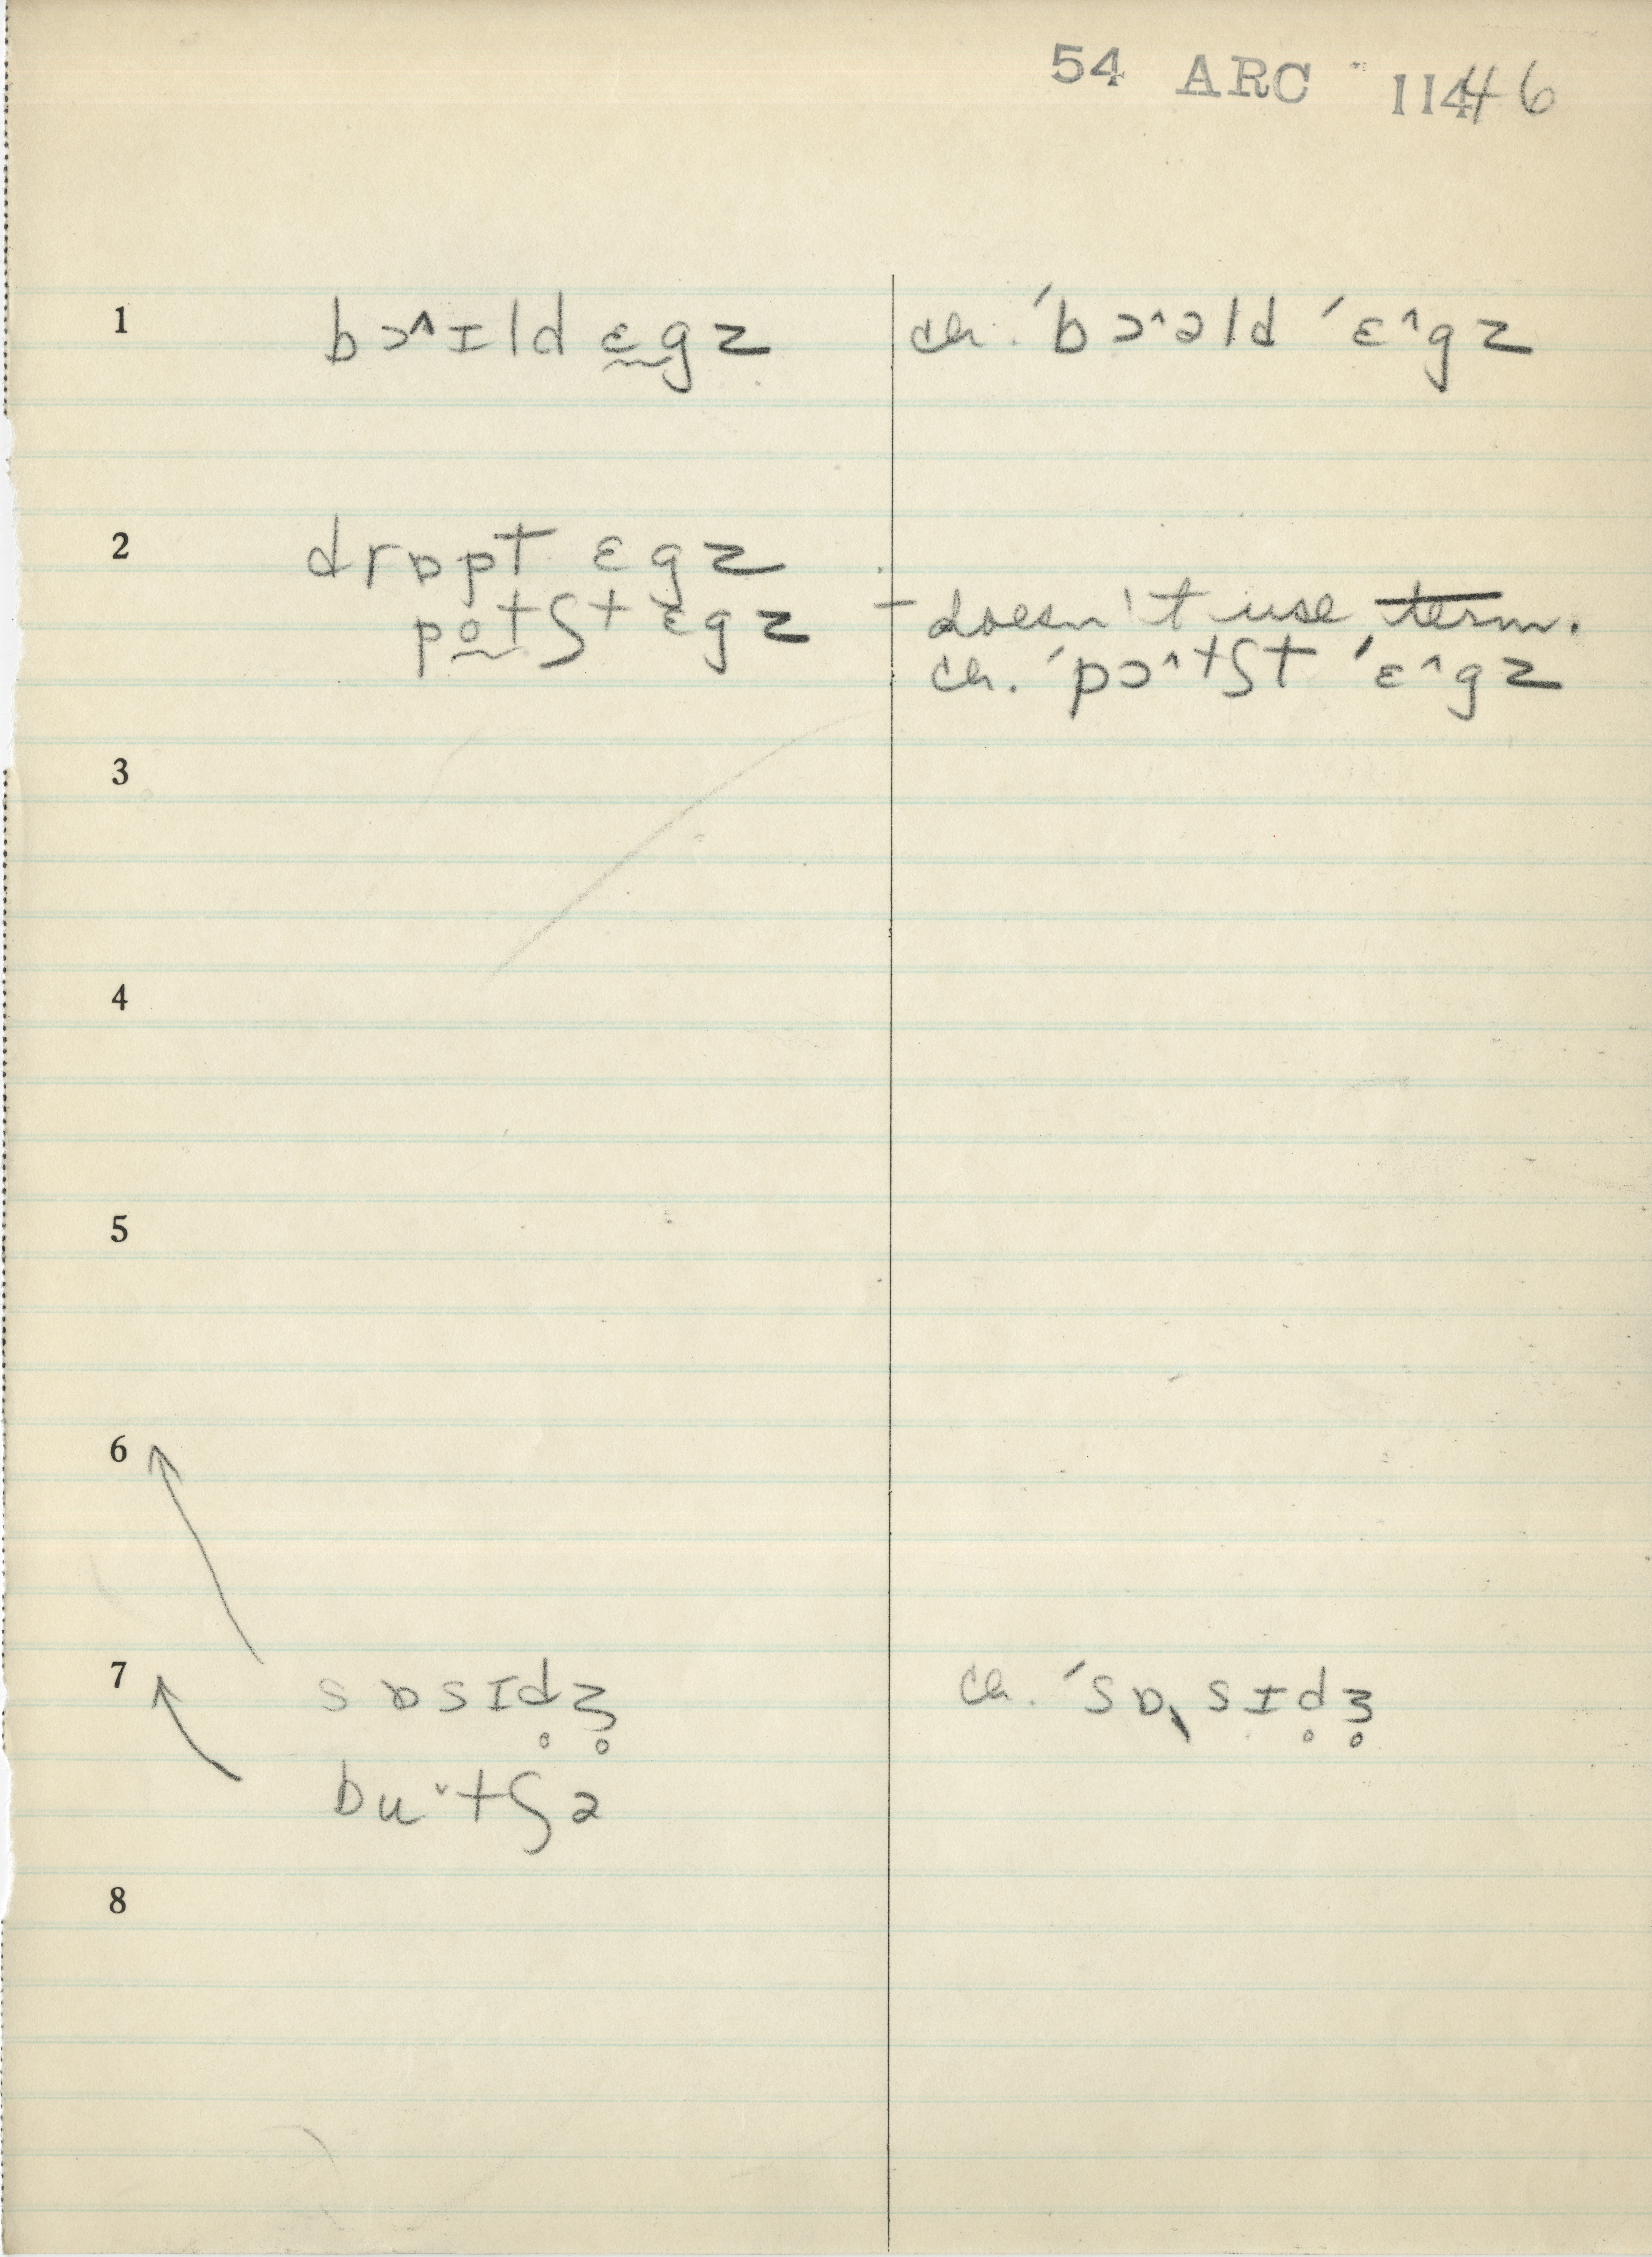 54 ARC 11446
1 bɔ^ɪld ɛ̰gz ch. ˈbɔ^əld ˈɛ^gz
2 drɒpt ɛgz
po̰tʃt ɛgz - doesn't use term.
ch. ˈpɔ^tʃt ˈɛ^gz
3
4
5
6
7 sɒsɪd̥ʒ̥ ch. ˈsɒˎsɪd̥ʒ̥
buˇtʃə
8